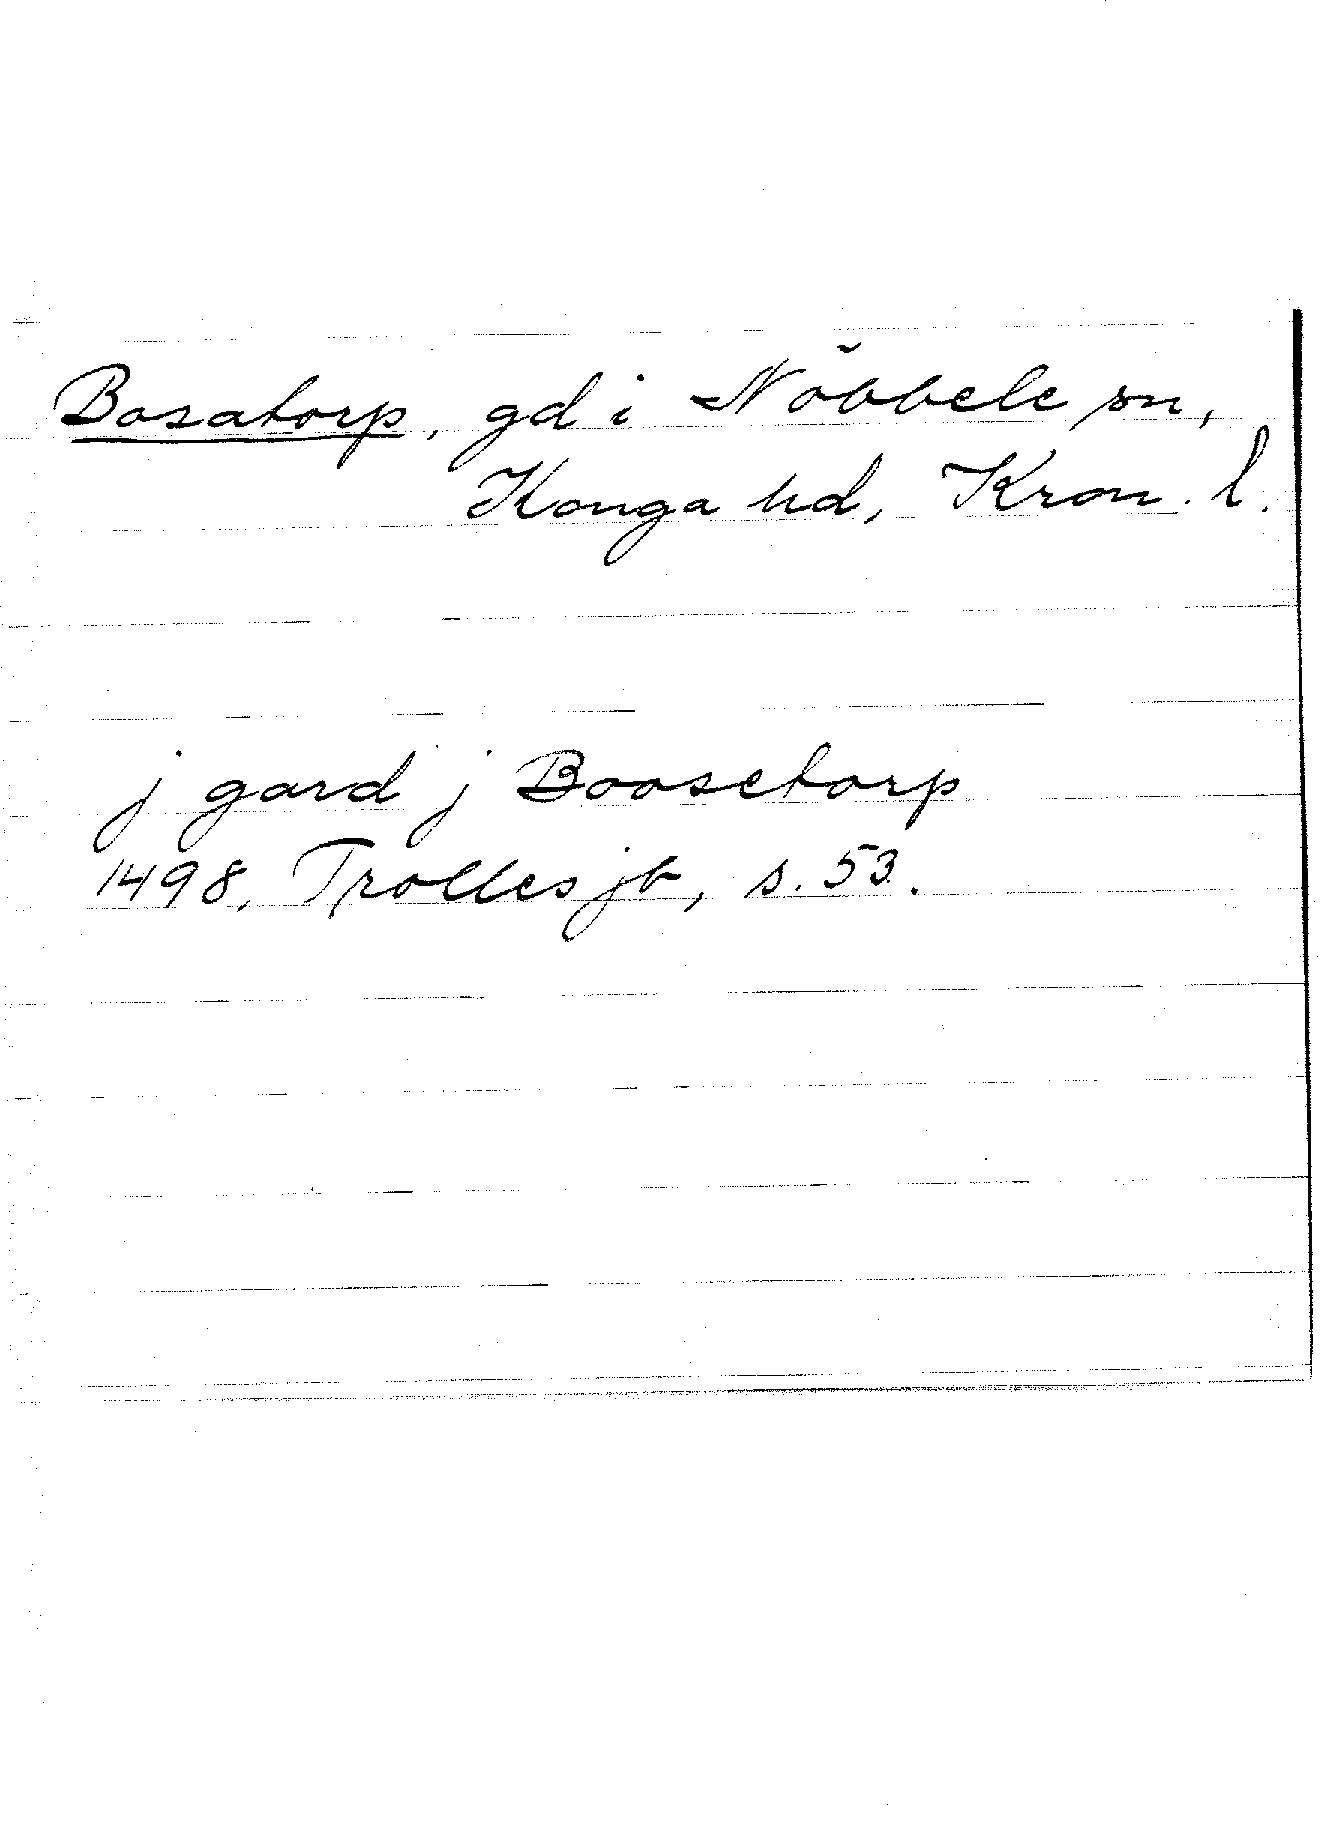 Bosatorp, gd i Nöbbele sn,
Konga hd, Kron. l.
j gard j Boosetorp
1498, Trolles jb, s. 53.